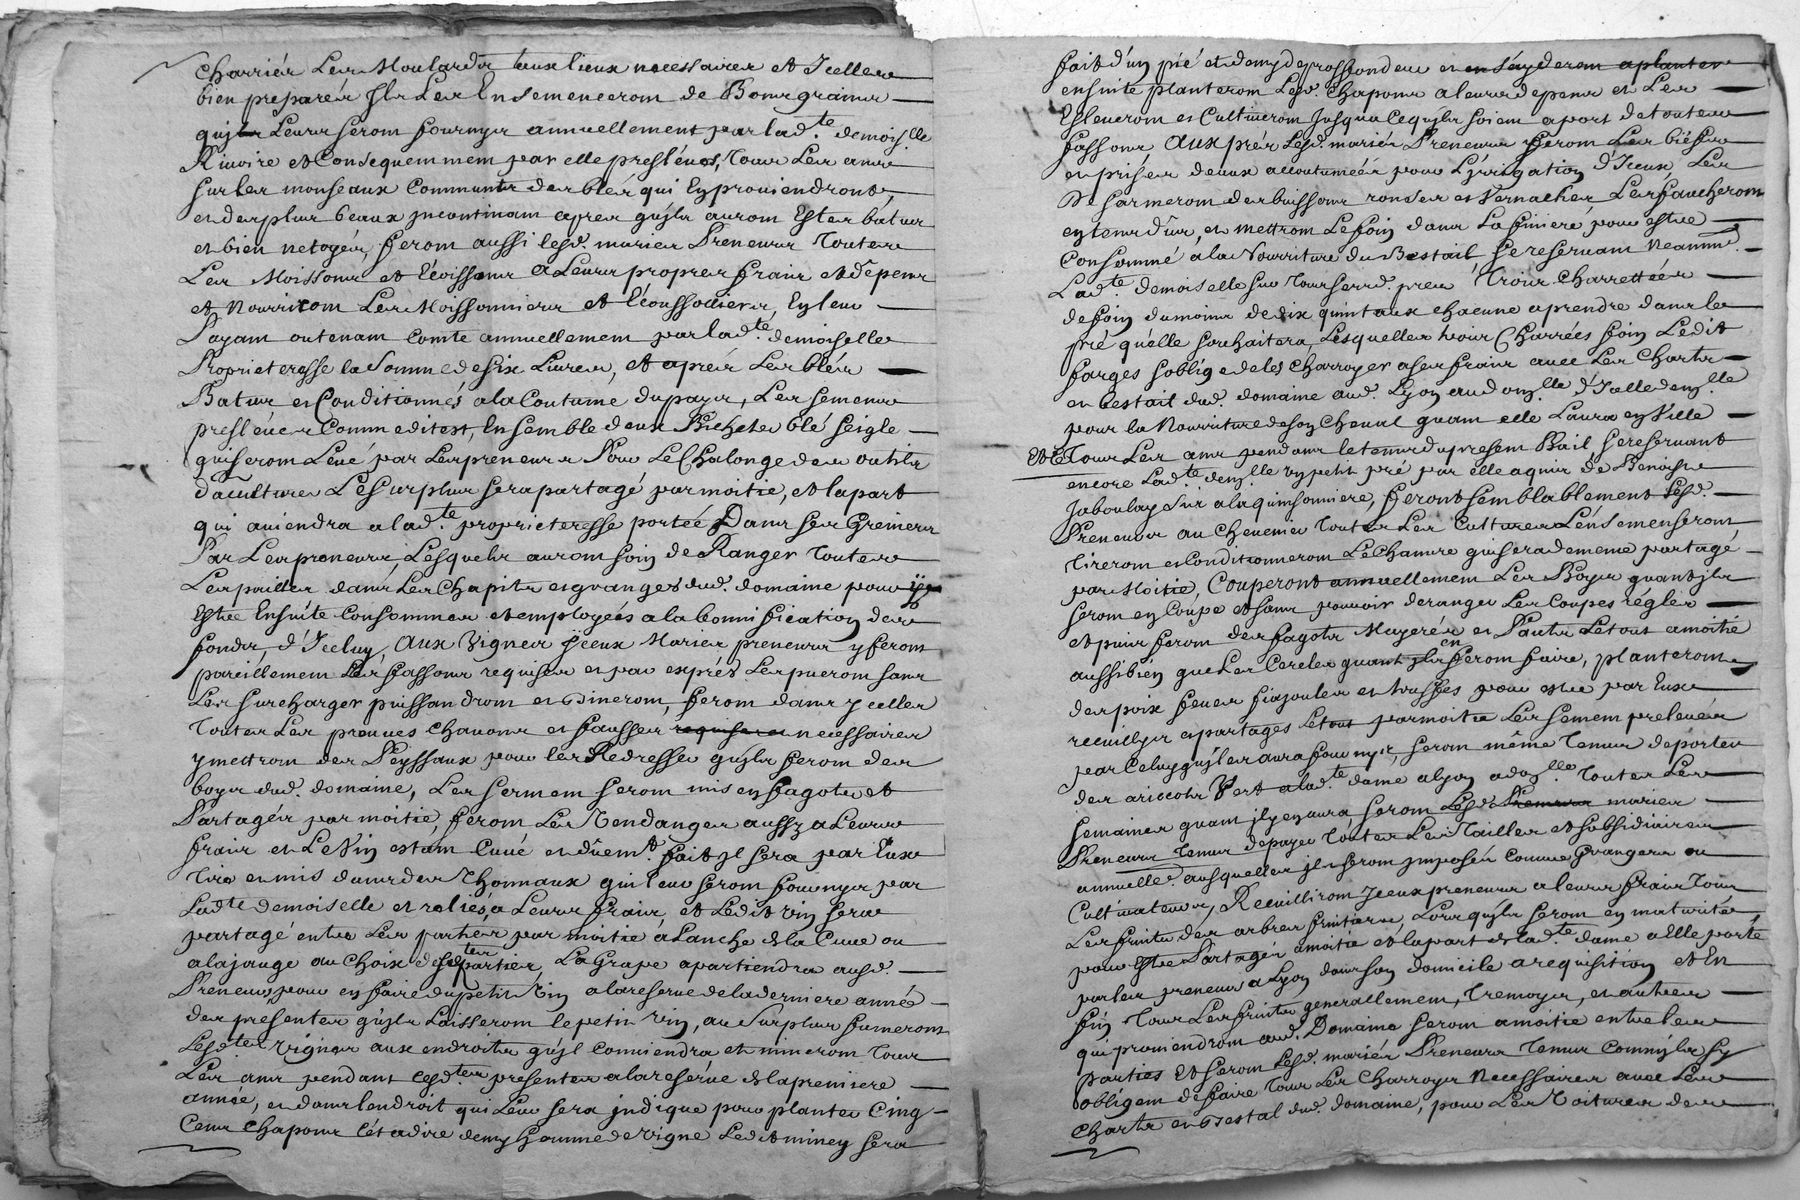 charriér Les Moulards aux lieux necessaires et Jcelles
bien preparés Jls Les Ensemenceront de Bons grains
qujls Leurs seront fournys annuellement par lad.te demois.lle
Rivoire et Consequemment par elle presleués, tous Les ans
sur les monseaux Communs des bleds qui En prouiendronts
et des plus beaux jncontinant apres qujls auront Estes batus
et bien netoyés, feront aussi lesd. mariés Preneurs toutes
Les Moissons et Ecoissons a Leurs propres frais et dépens
et Nourriront Les Moissonniers et Ecoussouiers, En leur
Payant ou tenant Comte annuellement par lad.te demoiselle
Proprieteresse la somme de six Liures, et aprés Les bleds
Batus et Conditionnés a la Coutume du pays, Les semens
presleués Comme dit est, Ensemble deux Bichets blé seigle
qui seront Leué par Les preneurs Pour Le Chalonge des outils
d'aculture Le surplus sera partagé par moitié, et la part
qui auiendra a lad.te proprieteresse portée Dans ses Greniers
Par Les preneurs, Lesquels auront soin de Ranger toutes
Les pailles dans Les Chapits et granges dud. domaine pour y
Estre Ensuite Consommés et employés a la bonnification des
fonds d'Jceluy, Aux Vignes Jceux Mariés preneurs y feront
pareillement Les fassons requises et par exprés Les pueront sans
Les surcharger puissandront et Bineront, feront dans ycelles
toutes Les preuues chauons et fausses requises necessaires
y mettront des Peyssaux pour les Redresser qujls feront des
boys dud. domaine, Les serment seront mis en fagots et
Partagés par moitié, feront Les Vendanges aussy a Leurs
frais et Le Vin estant Cuué et dûem.t fait jl sera par Eux
tiré et mis dans des thonnaux qui leur seront fournys par
Lad.te demoiselle et reliés a Leurs frais, et Ledit vin sera
partagé entre Les parties par moitie a Lanche de la Cuue ou
a la jauge au choix desd.tes parties, La Grape apartiendra ausd.
Preneurs pour en faire du petit Vin a la reserue de la derniere année
des presentes qujls Laisseront le petit vin, au surplus fumeront
Lesd.tes vignes aux endroits qujl Conuiendra et mineront tous
Les ans pendant lesd.tes presentes a la reserue de la premiere
année, et dans lendroit qui Leur sera jndiqué pour planter Cinq
Cens chapons c'est a dire demy homme de vigne Ledit miney sera
fait d'un pié et demy de profondeur et en sayderont a planter
ensuite planteront Lesd. Chapons a leurs depens et Les
Esleueront et Cultiueront Jusqua Ce qujls soient a port de toutes
fassons Aux prés Lesd. mariés Preneurs feront Les biéfs
et prises deaux accoutumées pour L'jrrigation d'Jceux, Les
De sarmeront des buissons ronses et Vernaches Les faucheront
en tems dûs, et mettront Le foin dans La finiere pour estre
Consommé a la Nourriture du Bestail se reseruant Neanm.s
Lad.te demoiselle sur tous serrd. prés Trois Charrettées
de foin du moins de dix quintaux chacune a prendre dans le
pré qu'elle souhaitera, Lesquelles trois Charrées foin Ledit
farges s'oblige de les charroyer a ses frais auec Les Charts
et bestail dud. domaine aud. Lyon au dom.lle d'Jcelle dem.lle
pour la Nourriture de son Cheual quant elle L'aura en Ville
Et ce Tous Les ans pendant le tems du present Bail se reseruant
encore Lad.te dem.lle un petit pré par elle aquis de Benoist
Jaboulay sur a la quinsonniere, feront semblablement Lesd.
Preneurs au Cheneuier toutes Les Cultures L'ensemenseront,
tireront et Conditionneront Le chanure qui sera de meme partagé
par Moitié, Couperont annuellement Les Boys quant jls
seront en Coupe et sans pouuoir deranger Les Coupes réglés
et puis feront des fagots Mayeres et Pauts Le tout a moitié
aussi bién que Les Cercles quant jls en feront faire, planteront
des poix feues fiajoules et truffes pour estre par Eux
recuillys et partages Le tout par moitie Les semens preleués
par Celuy qui les aura fourny, seront même Tenus de porter
des aricohs Vert a lad.te dame a Lyon a dom.lle toutes Les
semaines quant jl y en aura seront Lesd. Preneurs mariés
Preneurs tenus de payer toutes Les Tailles et subsidiaires
annuelle. ausquelles jls seront jmposés comme Grangers ou
Cultiuateurs, Recuilliront Jceux preneurs a leurs frais tous
Les fruits des arbres fruitiers, Lors qujls seront en maturité
pour Estre Partagés a moitie et la part de lad.te dame a Elle porté
par les preneurs a Lyon dans son domicile a requisition et En
fin Tous Les fruits generallement, Tremoyes, et autres
qui prouiendront aud. Domaine seront a moitie entre les
parties Et seront Lesd. mariés Preneurs tenus comm'jls sy
obligent de faire tous Les Charroys Necessaires auec Les
Charts et Bestal dud. domaine, pour Les Voitures des